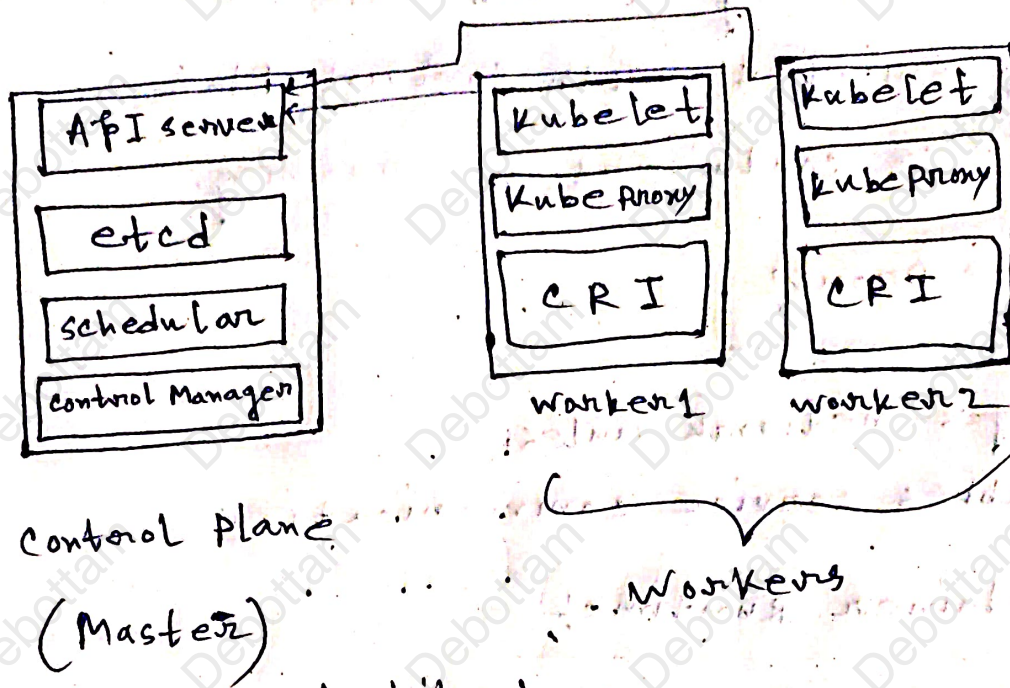 API server
etcd
schedular
control Manager
control plane
(Master)
Kubelet
Kube Proxy
CRI
Worker1
Kubelet
Kube Proxy
CRI
Worker2
Workers
Debottam